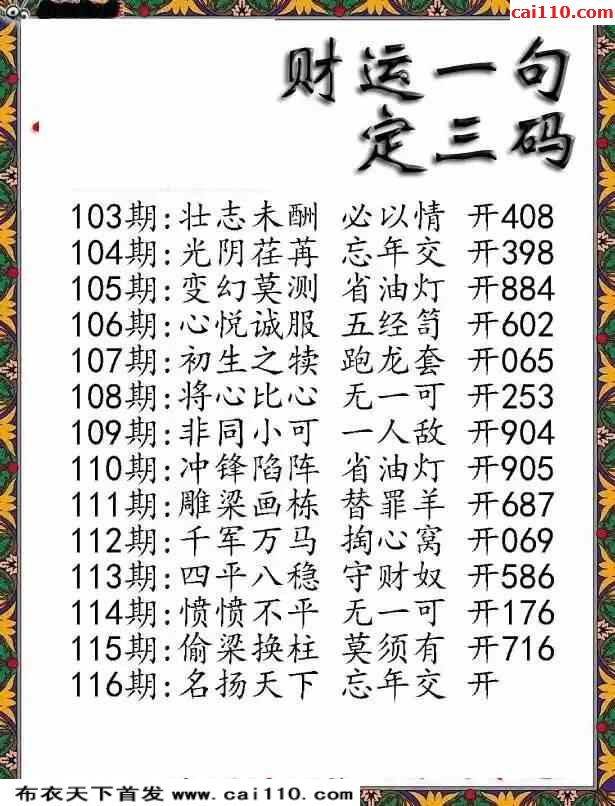 cai110.com
财运一句
定三码
103期:壮志未酬 必以情 开408
104期:光阴荏苒 忘年交 开398
105期:变幻莫测 省油灯 开884
106期:心悦诚服 五经笥 开602
107期:初生之犊 跑龙套 开065
108期:将心比心 无一可 开253
109期:非同小可 一人敌 开904
110期:冲锋陷阵 省油灯 开905
111期:雕梁画栋 替罪羊 开687
112期:千军万马 掏心窝 开069
113期:四平八稳 守财奴 开586
114期:愤愤不平 无一可 开176
115期:偷梁换柱 莫须有 开716
116期:名扬天下 忘年交 开
布衣天下首发 www.cai110.com